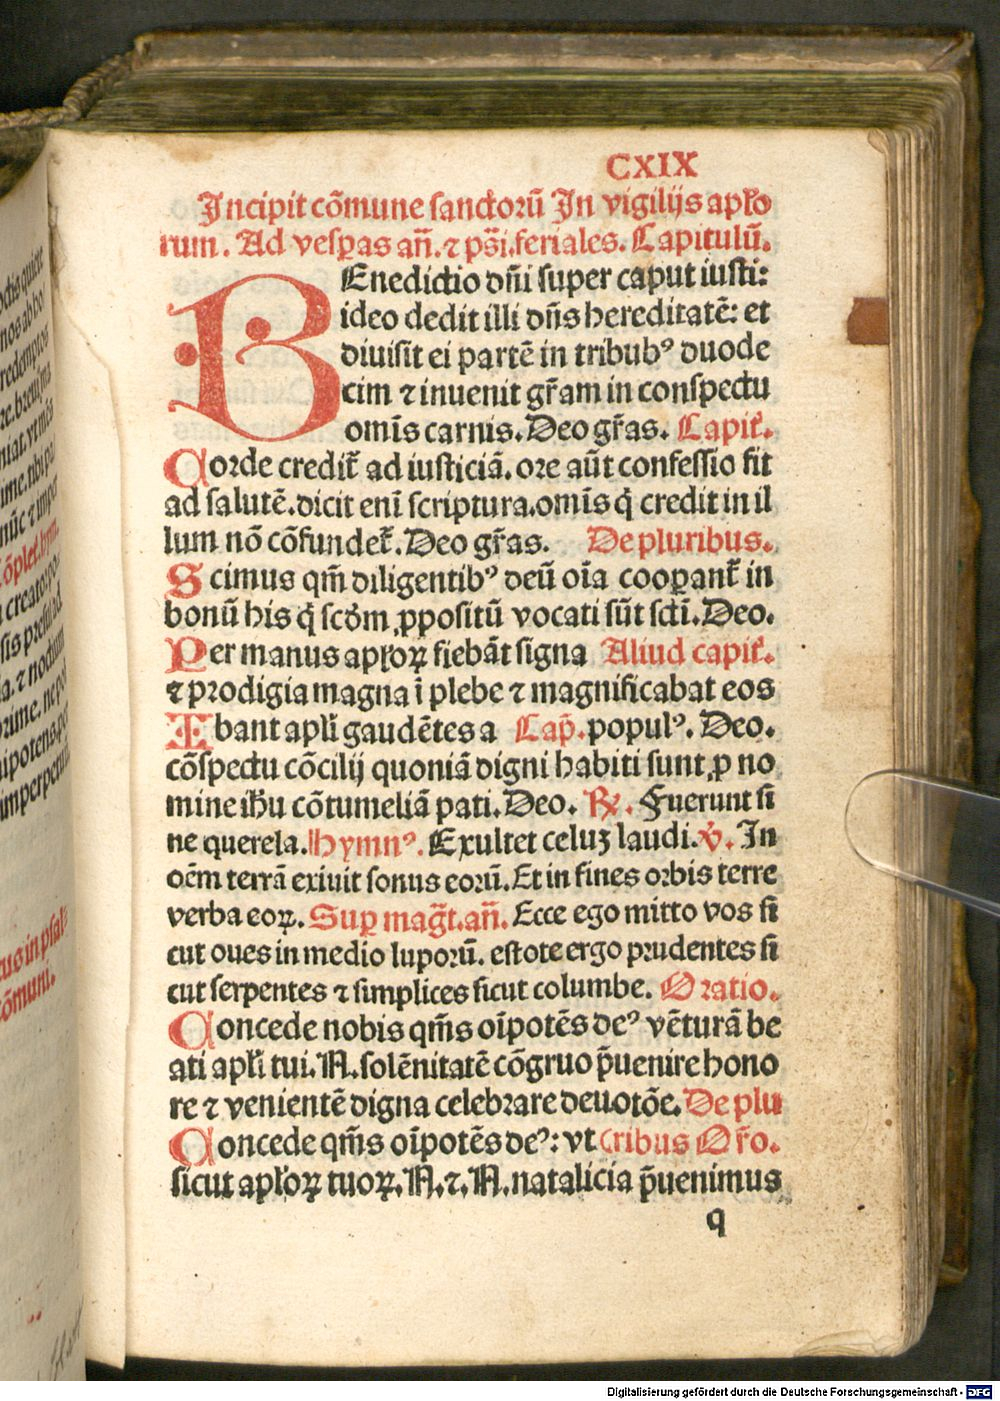 CXIX
Incipit cõmune sanctorũ In vigilijs apl̃o
rum. Ad vesꝑas añ. ⁊ ps̃i. feriales. Capitulũ.
BEnedictio dñi super caput iusti:
ideo dedit illi dñs hereditatẽ: et
diuisit ei partẽ in tribubꝰ duode
cim ⁊ inuenit gr̃am in conspectu
omĩs carnis. Deo gr̃as. Capit̃.
Corde credit̃ ad iusticiã. ore aũt confessio fit
ad salutẽ. dicit enĩ scriptura. omĩs q̃ credit in il
lum nõ cõfundet̃. Deo gr̃as. De pluribus.
Scimus qm̃ diligentibꝰ deũ oĩa cooꝑant̃ in
bonũ his q̃ scd̃m ꝓpositũ vocati sũt scti̇̃. Deo.
Per manus apl̃oꝝ fiebãt signa Aliud capit̃.
⁊ prodigia magna ĩ plebe ⁊ magnificabat eos
Ibant apl̃i gaudẽtes a Cap̃. populꝰ. Deo.
cõspectu cõcilij quoniã digni habiti sunt ꝓ no
mine ihũ cõtumeliã pati. Deo. ℞. Fuerunt si
ne querela. Hymnꝰ. Exultet celuꝫ laudi. ℣. In
oẽm terrã exiuit sonus eorũ. Et in fines orbis terre
verba eoꝝ. Suꝑ mag̃t. añ. Ecce ego mitto vos si
cut oues in medio luporũ. estote ergo prudentes si
cut serpentes ⁊ simplices sicut columbe. Oratio.
Concede nobis qm̃s oĩpotẽs deꝰ vẽturã be
ati apl̃i tui. N. solẽnitatẽ cõgruo p̃uenire hono
re ⁊ venientẽ digna celebrare deuotõe. De plu
Concede qm̃s oĩpotẽs deꝰ: vt (ribus Or̃o.
sicut apl̃oꝝ tuoꝝ. N. ⁊. N. natalicia p̃uenimus
q
Digitalisierung gefördert durch die Deutsche Forschungsgemeinschaft - DFG